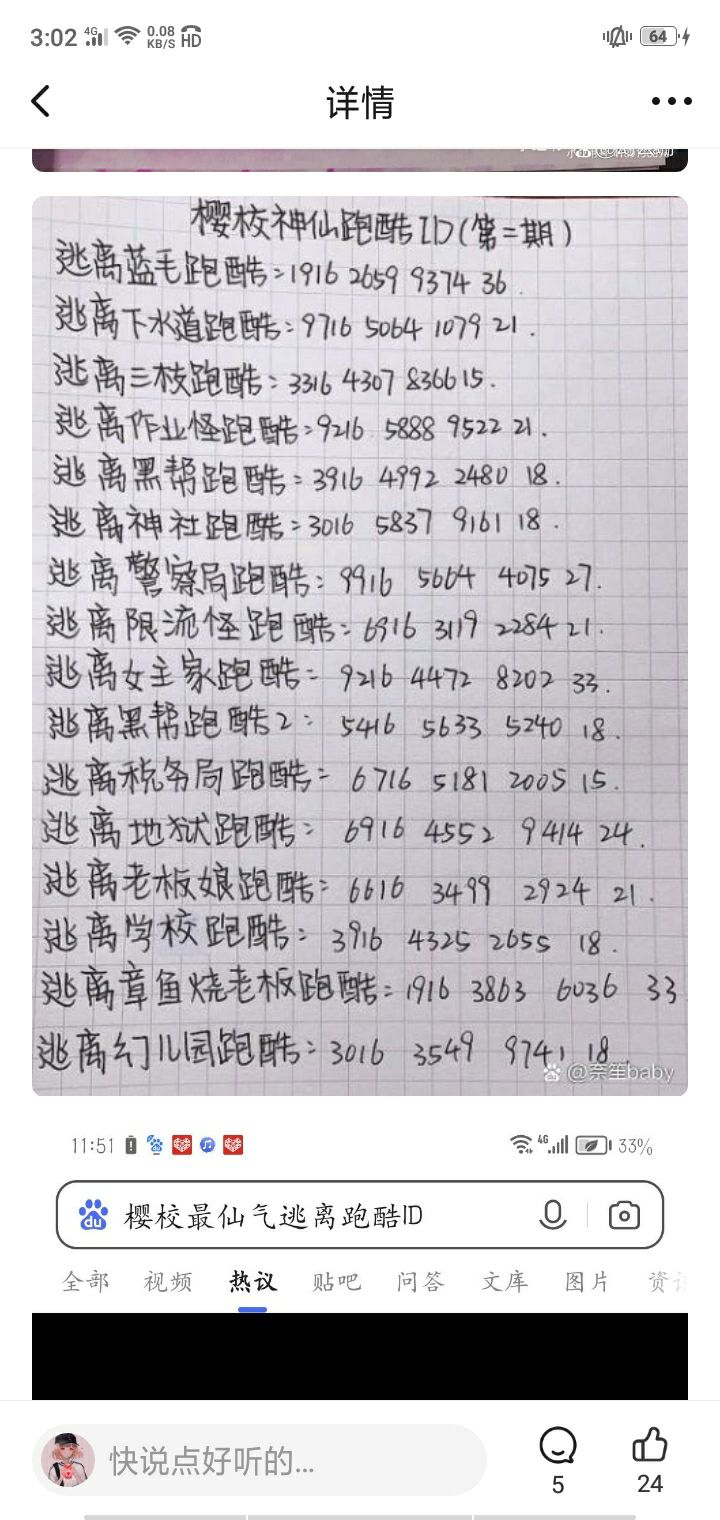 3:02 4G 0.08 KB/S HD 64
详情
樱校神仙跑酷ID(第二期)
逃离蓝毛跑酷:1916 2659 9374 36.
逃离下水道跑酷:9716 5064 1079 21.
逃离三枝跑酷:3316 4307 8366 15.
逃离作业怪跑酷:9216 5888 9522 21.
逃离黑帮跑酷:3916 4992 2480 18.
逃离神社跑酷:3016 5837 9161 18.
逃离警察局跑酷:9916 5664 4075 27.
逃离限流怪跑酷:6916 3119 2284 21.
逃离女主家跑酷:9216 4472 8202 33.
逃离黑帮跑酷2:5416 5633 5240 18.
逃离税务局跑酷:6716 5181 2005 15.
逃离地狱跑酷:6916 4552 9414 24.
逃离老板娘跑酷:6616 3499 2924 21.
逃离学校跑酷:3916 4325 2655 18.
逃离章鱼烧老板跑酷:1916 3863 6036 33
逃离幻儿园跑酷:3016 3549 9741 18.
@奈笙baby
11:51 4G 33%
du 樱校最仙气逃离跑酷ID
全部 视频 热议 贴吧 问答 文库 图片 资讯
快说点好听的...
5 24